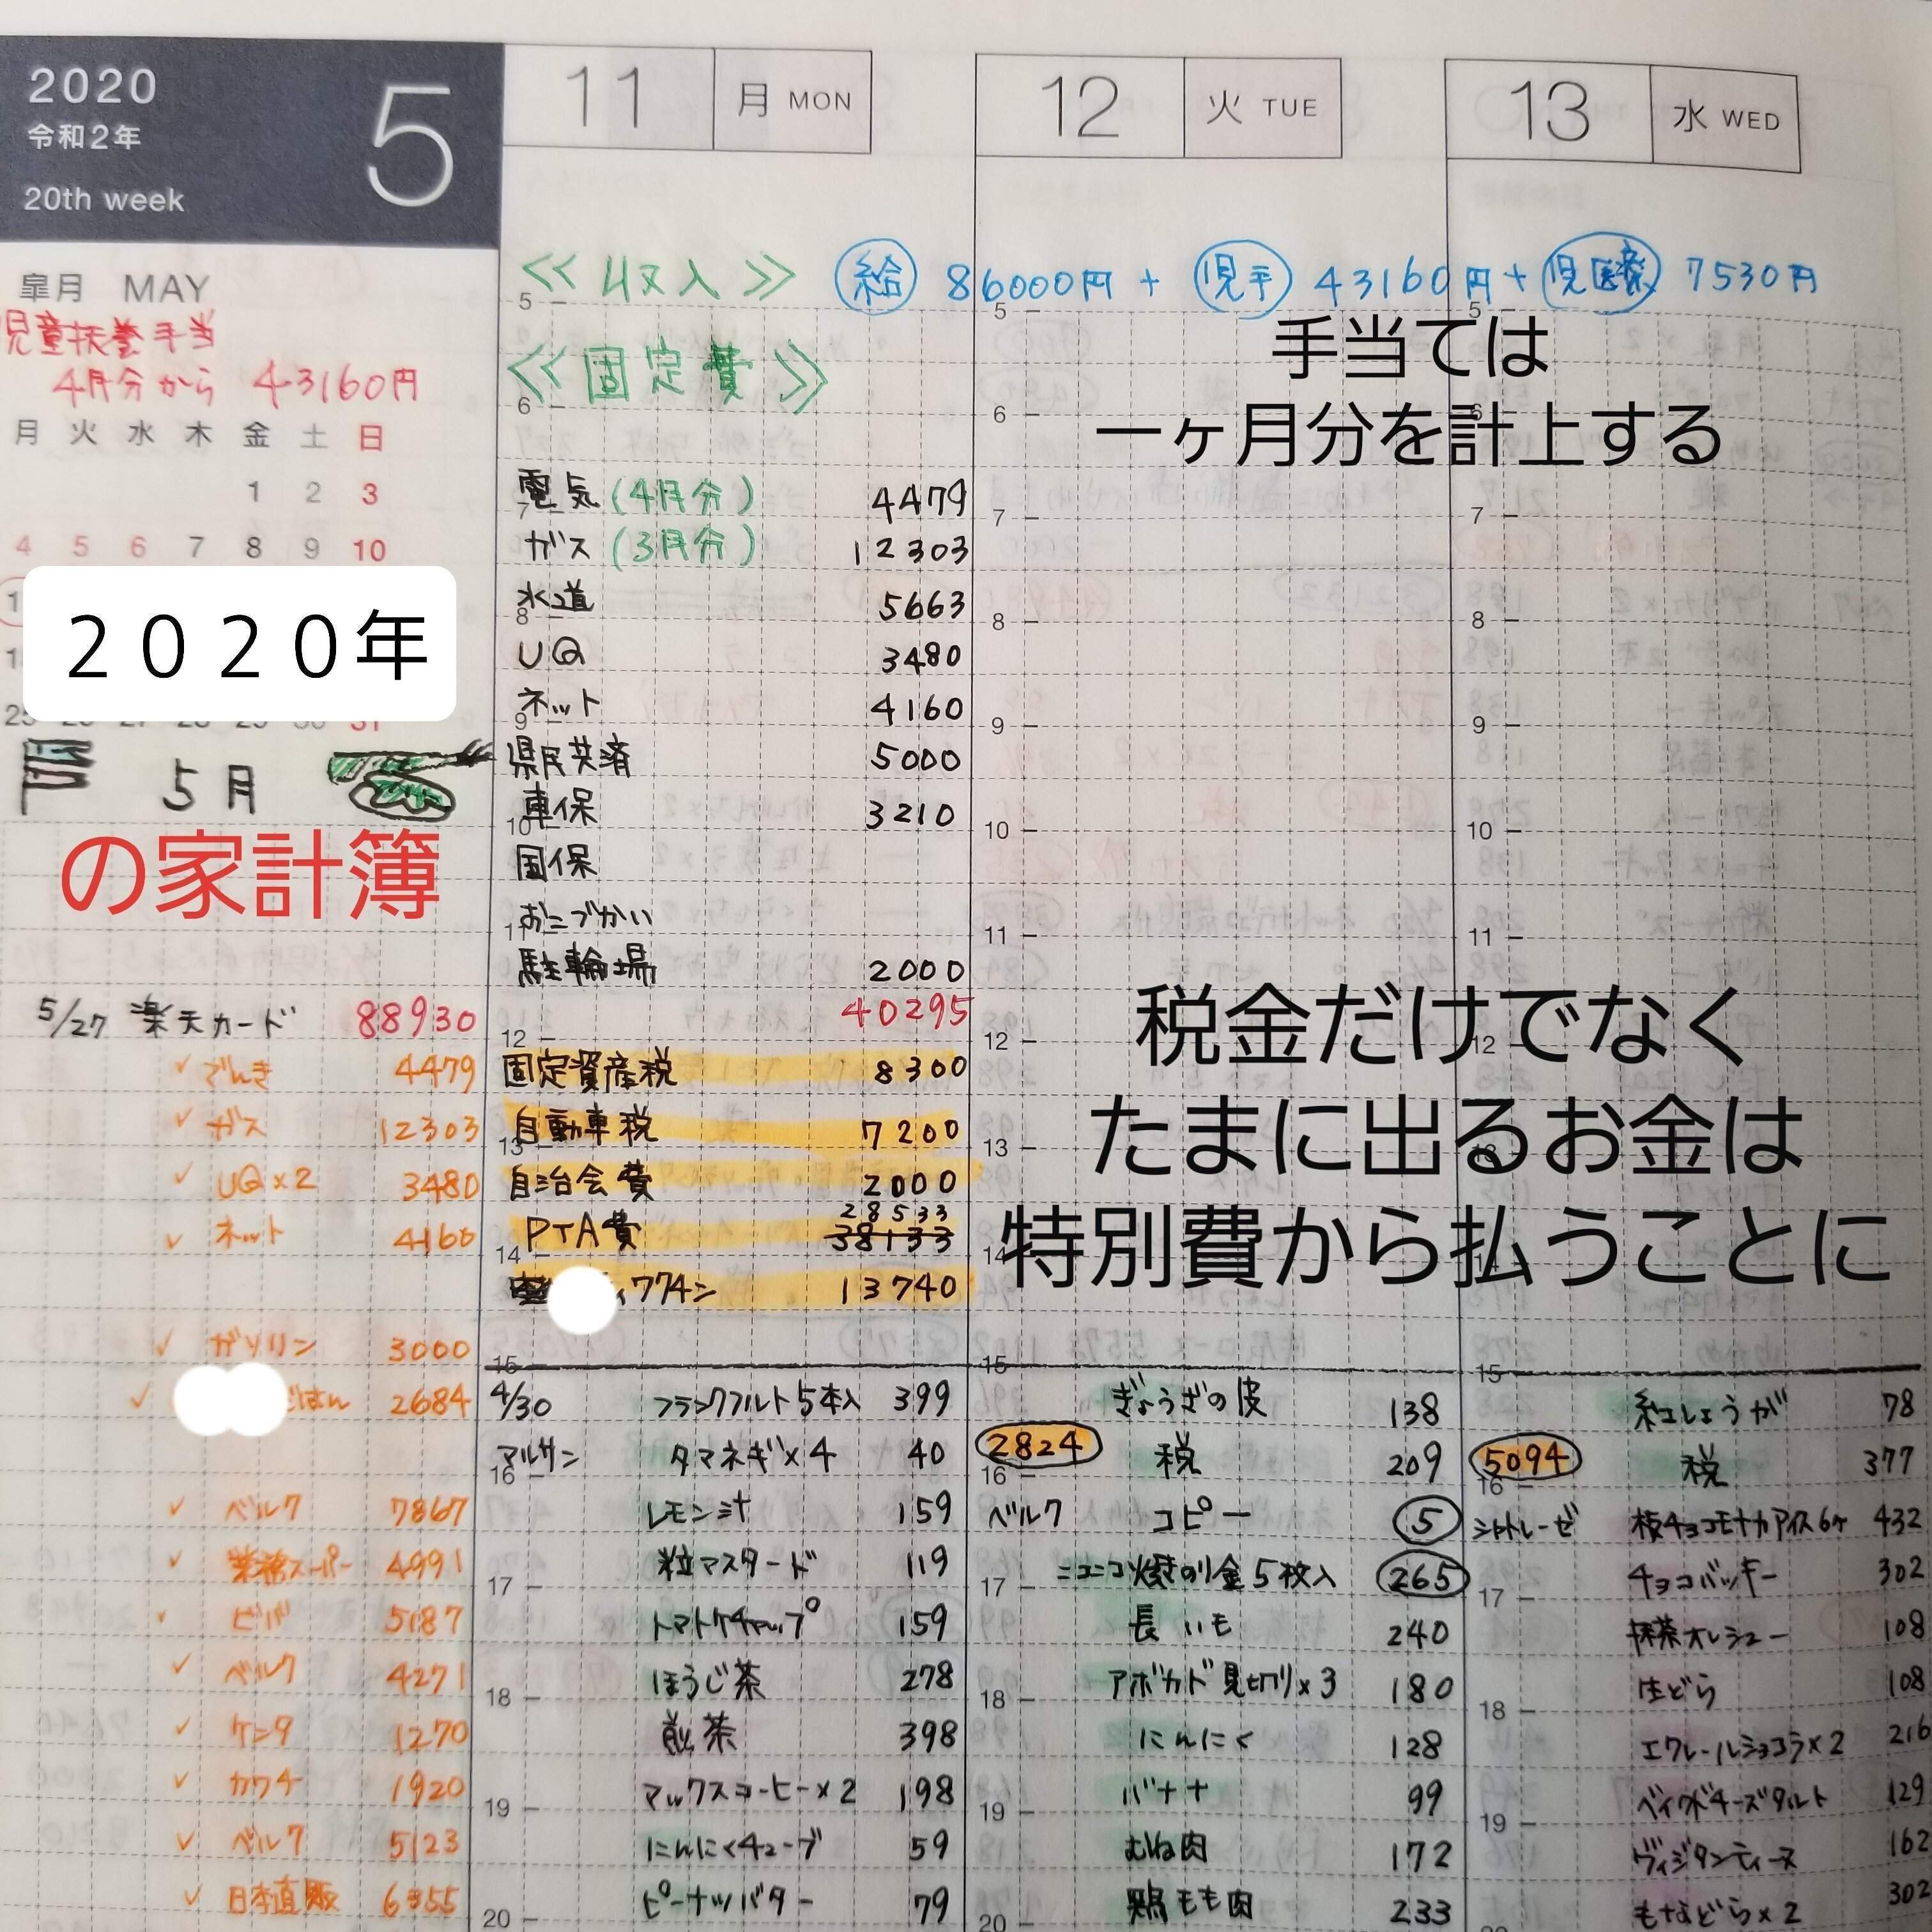 2020
令和2年
5
20th week
皐月 MAY
児童扶養手当
4月分から 43160円
月 火 水 木 金 土 日
1 2 3
4 5 6 7 8 9 10
2020年
25 26 27 28 29 30 31
5月
の家計簿
5/27 楽天カード 88930
✓ でんき 4479
✓ ガス 12303
✓ UQ×2 3480
✓ ネット 4160
✓ ガソリン 3000
✓ ごはん 2684
✓ ベルク 7867
✓ 業務スーパー 4991
✓ ビバ 5187
✓ ベルク 4271
✓ ケンタ 1270
✓ カワチ 1920
✓ ベルク 5123
✓ 日本直販
11 月 MON
12 火 TUE
13 水 WED
≪収入≫ 給 86000円 + 児手 43160円 + 児医療 7530円
≪固定費≫
手当ては
一ヶ月分を計上する
電気(4月分) 4479
ガス(3月分) 12303
水道 5663
UQ 3480
ネット 4160
県民共済 5000
車保 3210
国保
おこづかい
駐輪場 2000
40295
固定資産税 8300
自動車税 7200
自治会費 2000
28533
PTA費 38133
13740
税金だけでなく
たまに出るお金は
特別費から払うことに
4/30 フランクフルト5本入 399
マルサン タマネギ×4 40
レモン汁 159
粒マスタード 119
トマトケチャップ 159
ほうじ茶 278
煎茶 398
マックスコーヒー×2 198
にんにくチューブ 59
ピーナッツバター 79
ぎょうざの皮 138
2824 税 209
ベルク コピー 5
ニコニコ焼きのり金5枚入 265
長いも 240
アボカド見切り×3 180
にんにく 128
バナナ 99
むね肉 172
鶏もも肉 233
紅しょうが 78
5094 税 377
シャトレーゼ 板チョコモナカアイス6ヶ 432
チョコバッキー 302
抹茶オレシュー 108
生どら 108
エクレールショコラ×2 216
ベイクドチーズタルト 129
162
もなどら×2 302
5
6
7
8
9
10
11
12
13
14
15
16
17
18
19
20
5
6
7
8
9
10
11
12
13
14
15
16
17
18
19
20
5
6
7
8
9
10
11
12
13
15
16
17
18
19